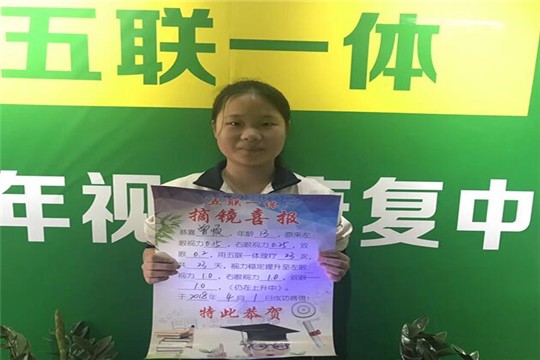 五联一体
年视 复中
五联一体
摘镜喜报
恭喜 年龄 13 原来左
眼视力0.15,右眼视力0.25,双
眼0.2,用五联一体理疗 23 次,
共 23 天,视力稳定提升至左眼
视力 1.0 右眼视力 1.0,双眼
1.0 。(仍在上升中)。
于2018年 4 月 1 日成功摘镜!
特此恭贺